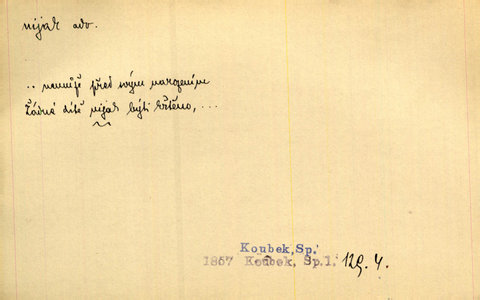 nijak adv.
.. nemůže před svým narozením
Žádné dítě nijak býti křtěno, ...
Koubek, Sp.
1857 Koubek, Sp.1. 129.4.